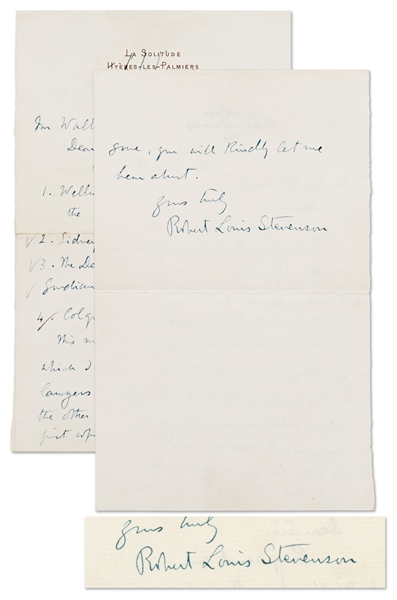 La Solitude
Hyères-les-Palmiers
Mr Wall
Dear
1. Wellin
the
2. Sidney
3. The De
4. Colq
This m
which I
the other
first cop
gone, you will kindly let me
hear about.
Yours truly
Robert Louis Stevenson
Yours truly
Robert Louis Stevenson